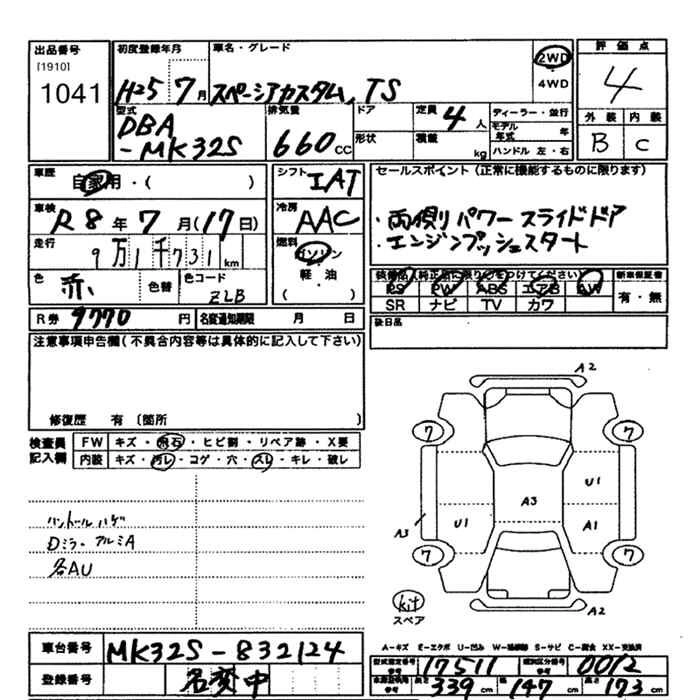 出品番号 初度登録年月 車名・グレード 評価点
[1910]
1041 H25 7月 スペーシアカスタム, TS 2WD 4
4WD
型式 排気量 ドア 定員 4人 ディーラー・並行 外装 内装
DBA モデル年式 年
-MK32S 660cc 形状 積載 kg ハンドル 左・右 B C
車歴 自家用・( ) シフト IAT セールスポイント(正常に機能するものに限ります)
車検 R8年7月(17日) 冷房 AAC ・両側パワースライドドア
走行 9万1千731km 燃料 ガソリン ・エンジンプッシュスタート
軽・油
色 赤 色替 色コード ZLB ( )
装備品(純正品に限り○をつけてください) 新車保証書
PS PW ABS エアB AW 有・無
SR ナビ TV カワ
R券 9770円 名変通知期限 月 日 後日品
注意事項申告欄(不具合内容等は具体的に記入して下さい)
修復歴 有〔箇所 〕
検査員記入欄 FW キズ・飛石・ヒビ割・リペア跡・X要
内装 キズ・汚レ・コゲ・穴・スレ・キレ・破レ
A2
7 7
U1
A3
A3 U1 A1
7 7
ハンドルハゲ
Dミラーアルミ A
各AU
kit
スペア A2
A-キズ E-エクボ U-凹み W-補修跡 S-サビ C-腐食 XX-交換済
車台番号 MK32S-832124
型式指定番号 17511 類別区分番号 0012
登録番号 名変中
長さ 339cm 幅 147cm 高さ 173cm